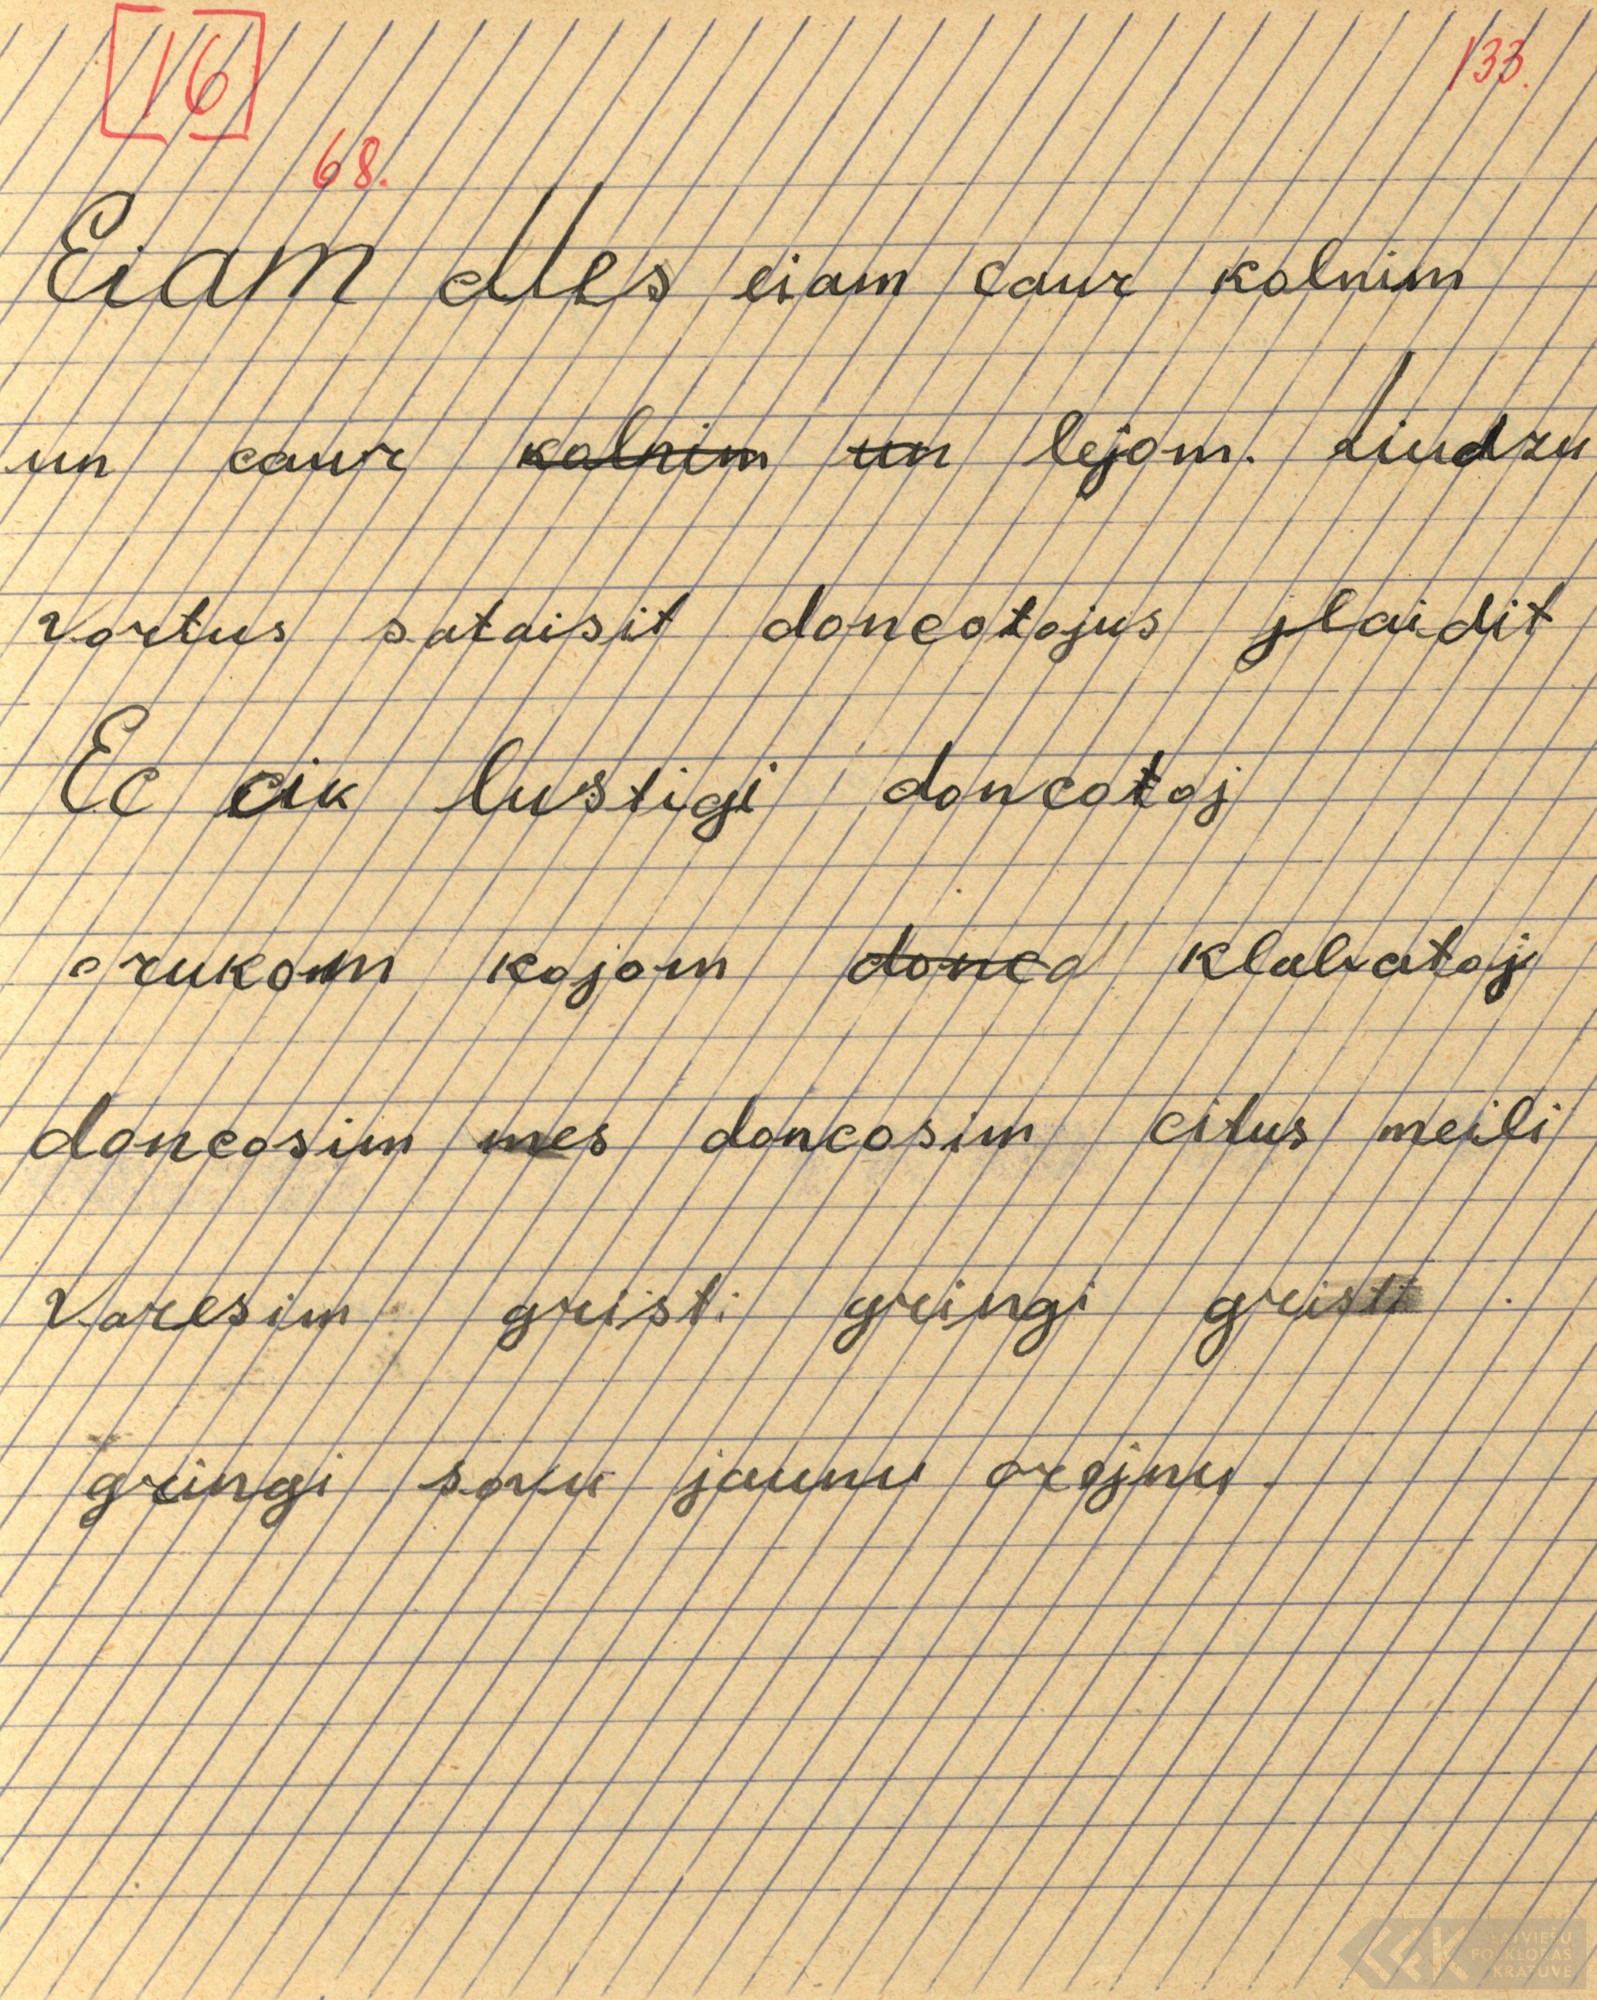 16
133.
68.
Eiam Mes eiam caur kolnim
un caur kolnim un lejom. Liudzu
vortus sataisit doncotojus jlaidit
Ec cik lustigi doncotoj
orukom kojom donca klabatoj
doncosim mes doncosim citus meili
varesim gristi gringi gristi
gringi sovu jaunu orejnu.
LATVIEŠU
FOLKLORAS
KRĀTUVE